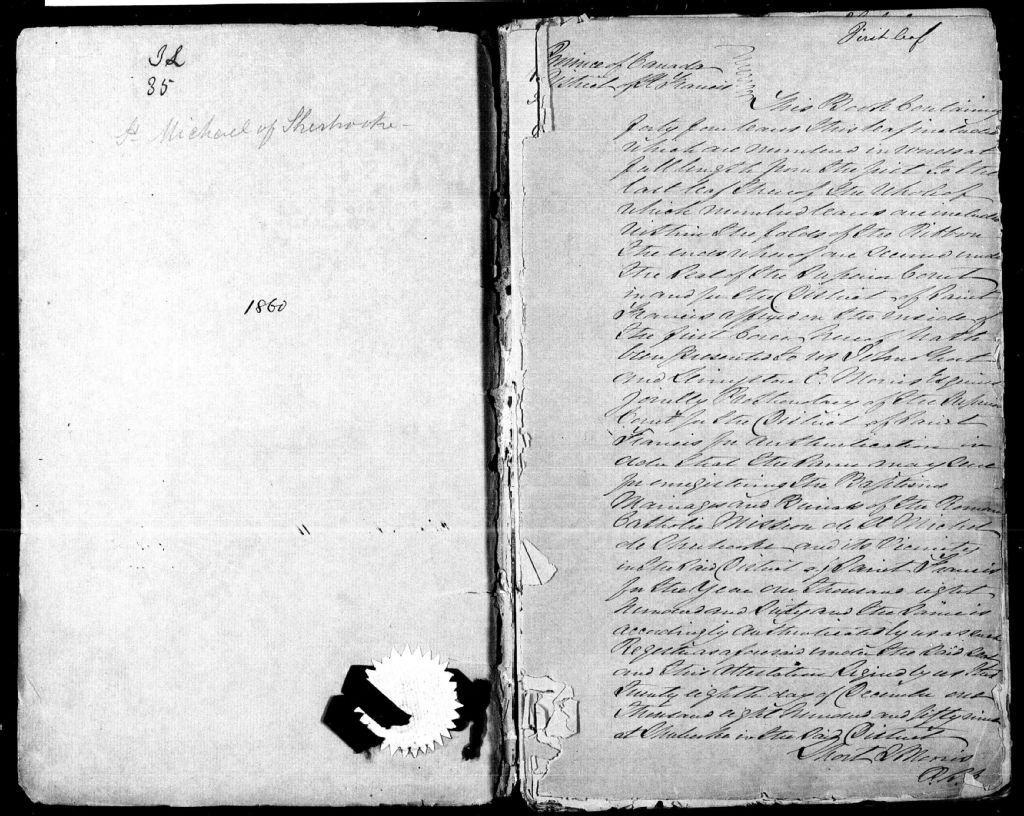 32
35
St Michael of Sherbrooke
1860
First leaf
Province of Canada
District of St Francis
This Book Containing
forty four leaves this leaf included
which are numbered in words at
full length from the first to the
last leaf thereof the whole of
which numbered leaves are included
within the folds of the Ribbon
the ends whereof are secured under
the Seal of the Superior Court
in and for the District of Saint
Francis affixed on the inside of
the first Cover hereof hath
been presented to us Short
and Morris Esquires
jointly Prothonotary of the Superior
Court for the District of Saint
Francis for authentication in
order that the same may serve
for enregistering the Baptisms
Marriages and Burials of the Roman
Catholic Mission de St Michel
de Sherbrooke and its Vicinity
in the said District of Saint Francis
for the Year one thousand eight
hundred and Sixty and the same is
accordingly authenticated by us as such
Register as aforesaid under the said Seal
and this attestation Signed by us this
twenty eighth day of December one
thousand eight hundred and fifty nine
at Sherbrooke in the said District
Short & Morris
P.S.C.